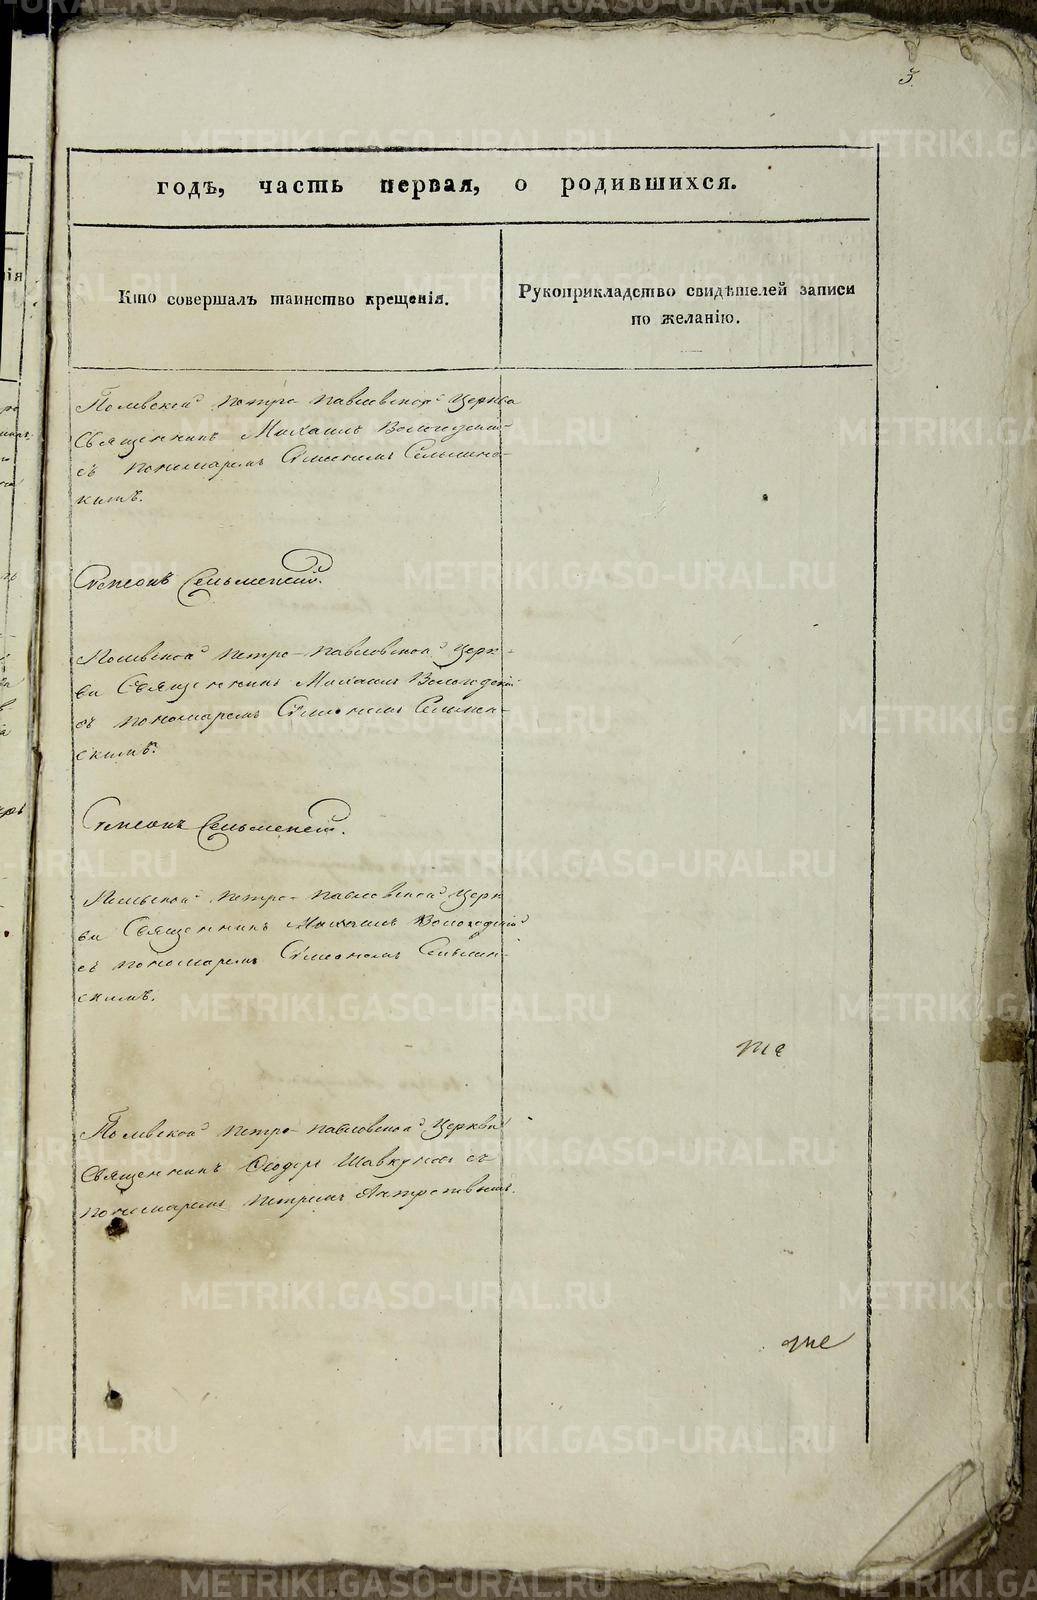 3.
годѣ, часть первая, о родившихся.
Кто совершалъ таинство крещенія.
Рукоприкладство свидѣтелей записи
по желанію.
Полевской Петро-Павловской Церкви
Священникъ Михаилъ Вологодскій
съ пономаремъ Симеономъ Сельмен-
скимъ.
Симеонъ Сельменскій.
Полевской Петро-Павловской Церк-
ви Священникъ Михаилъ Вологодскій
съ пономаремъ Симеономъ Сельмен-
скимъ.
Симеонъ Сельменскій.
Полевской Петро-Павловской Церк-
ви Священникъ Михаилъ Вологодскій
съ пономаремъ Симеономъ Сельмен-
скимъ.
Полевской Петро-Павловской Церкви
Священникъ Ѳеодоръ Шавкуновъ съ
пономаремъ Петромъ
METRIKI.GASO-URAL.RU